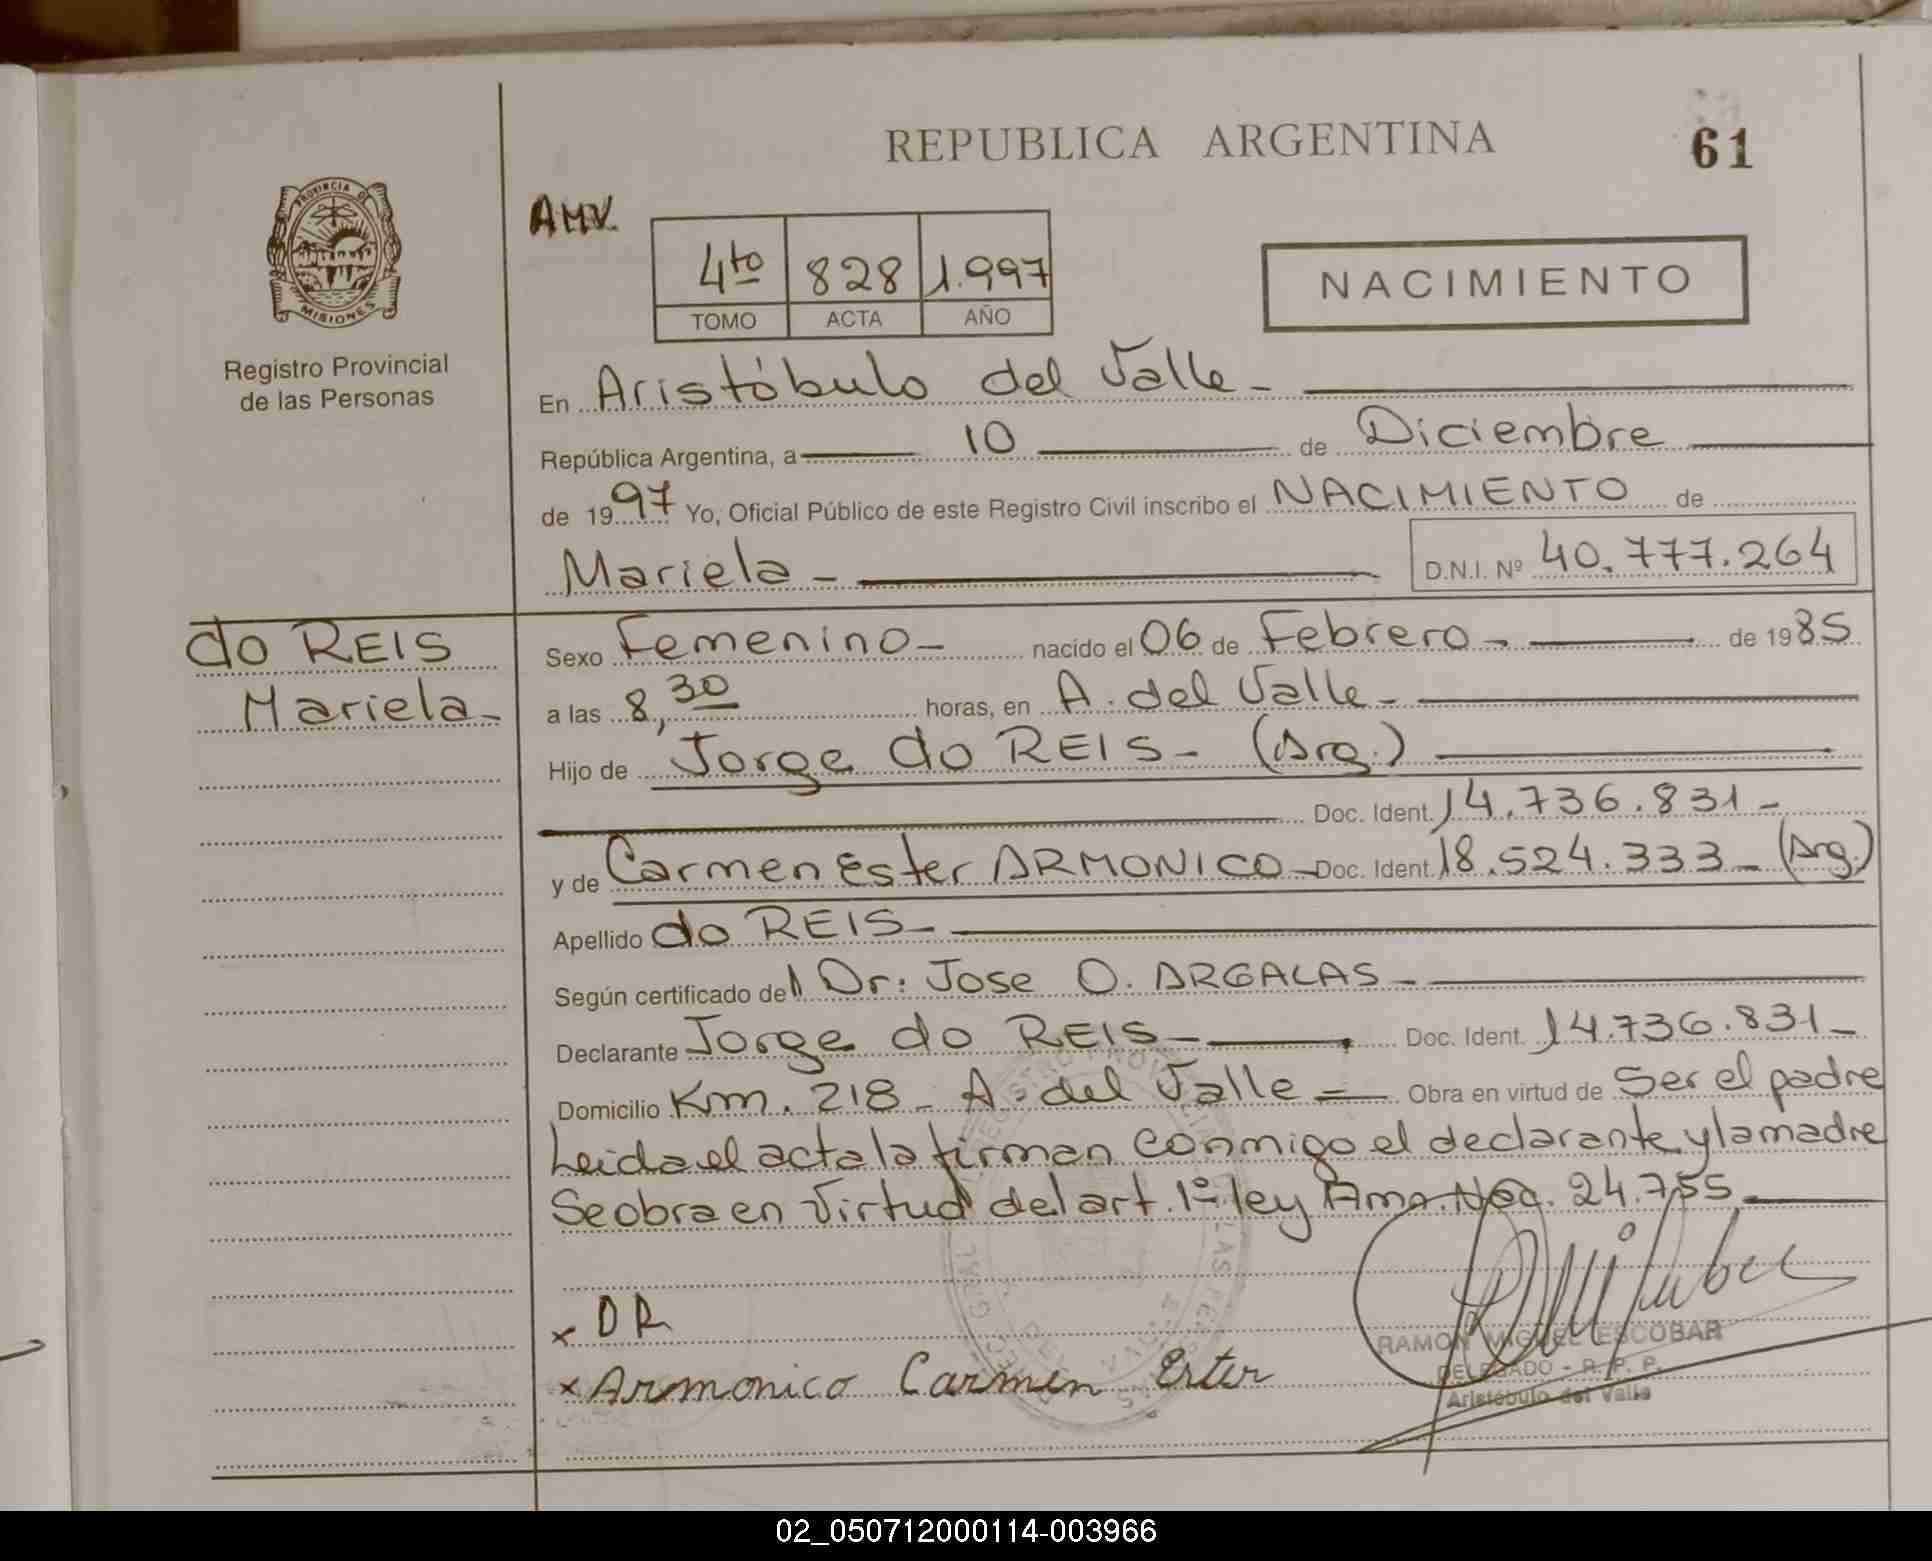 REPUBLICA ARGENTINA
61
PROVINCIA DE
MISIONES
Registro Provincial
de las Personas
AMV.
4to 828 1.997
TOMO ACTA AÑO
NACIMIENTO
En Aristóbulo del Valle -
República Argentina, a 10 de Diciembre
de 1997 Yo, Oficial Público de este Registro Civil inscribo el NACIMIENTO de
Mariela - D.N.I. Nº 40.777.264
do REIS
Mariela -
Sexo Femenino - nacido el 06 de Febrero - de 1985
a las 8,30 horas, en A. del Valle -
Hijo de Jorge do REIS - (Arg.)
Doc. Ident. 14.736.831 -
y de Carmen Ester ARMONICO - Doc. Ident. 18.524.333 - (Arg.)
Apellido do REIS -
Según certificado del Dr: Jose O. ARGALAS -
Declarante Jorge do REIS - Doc. Ident. 14.736.831 -
Domicilio Km. 218 - A. del Valle = Obra en virtud de Ser el padre
Leida el acta la firman conmigo el declarante y la madre
Se obra en Virtud del art. 1º ley Amn. Nac. 24.755
x DR
x Armonico Carmen Ester
RAMON MIGUEL ESCOBAR
DELEGADO - R. P. P.
Aristóbulo del Valle
02_050712000114-003966